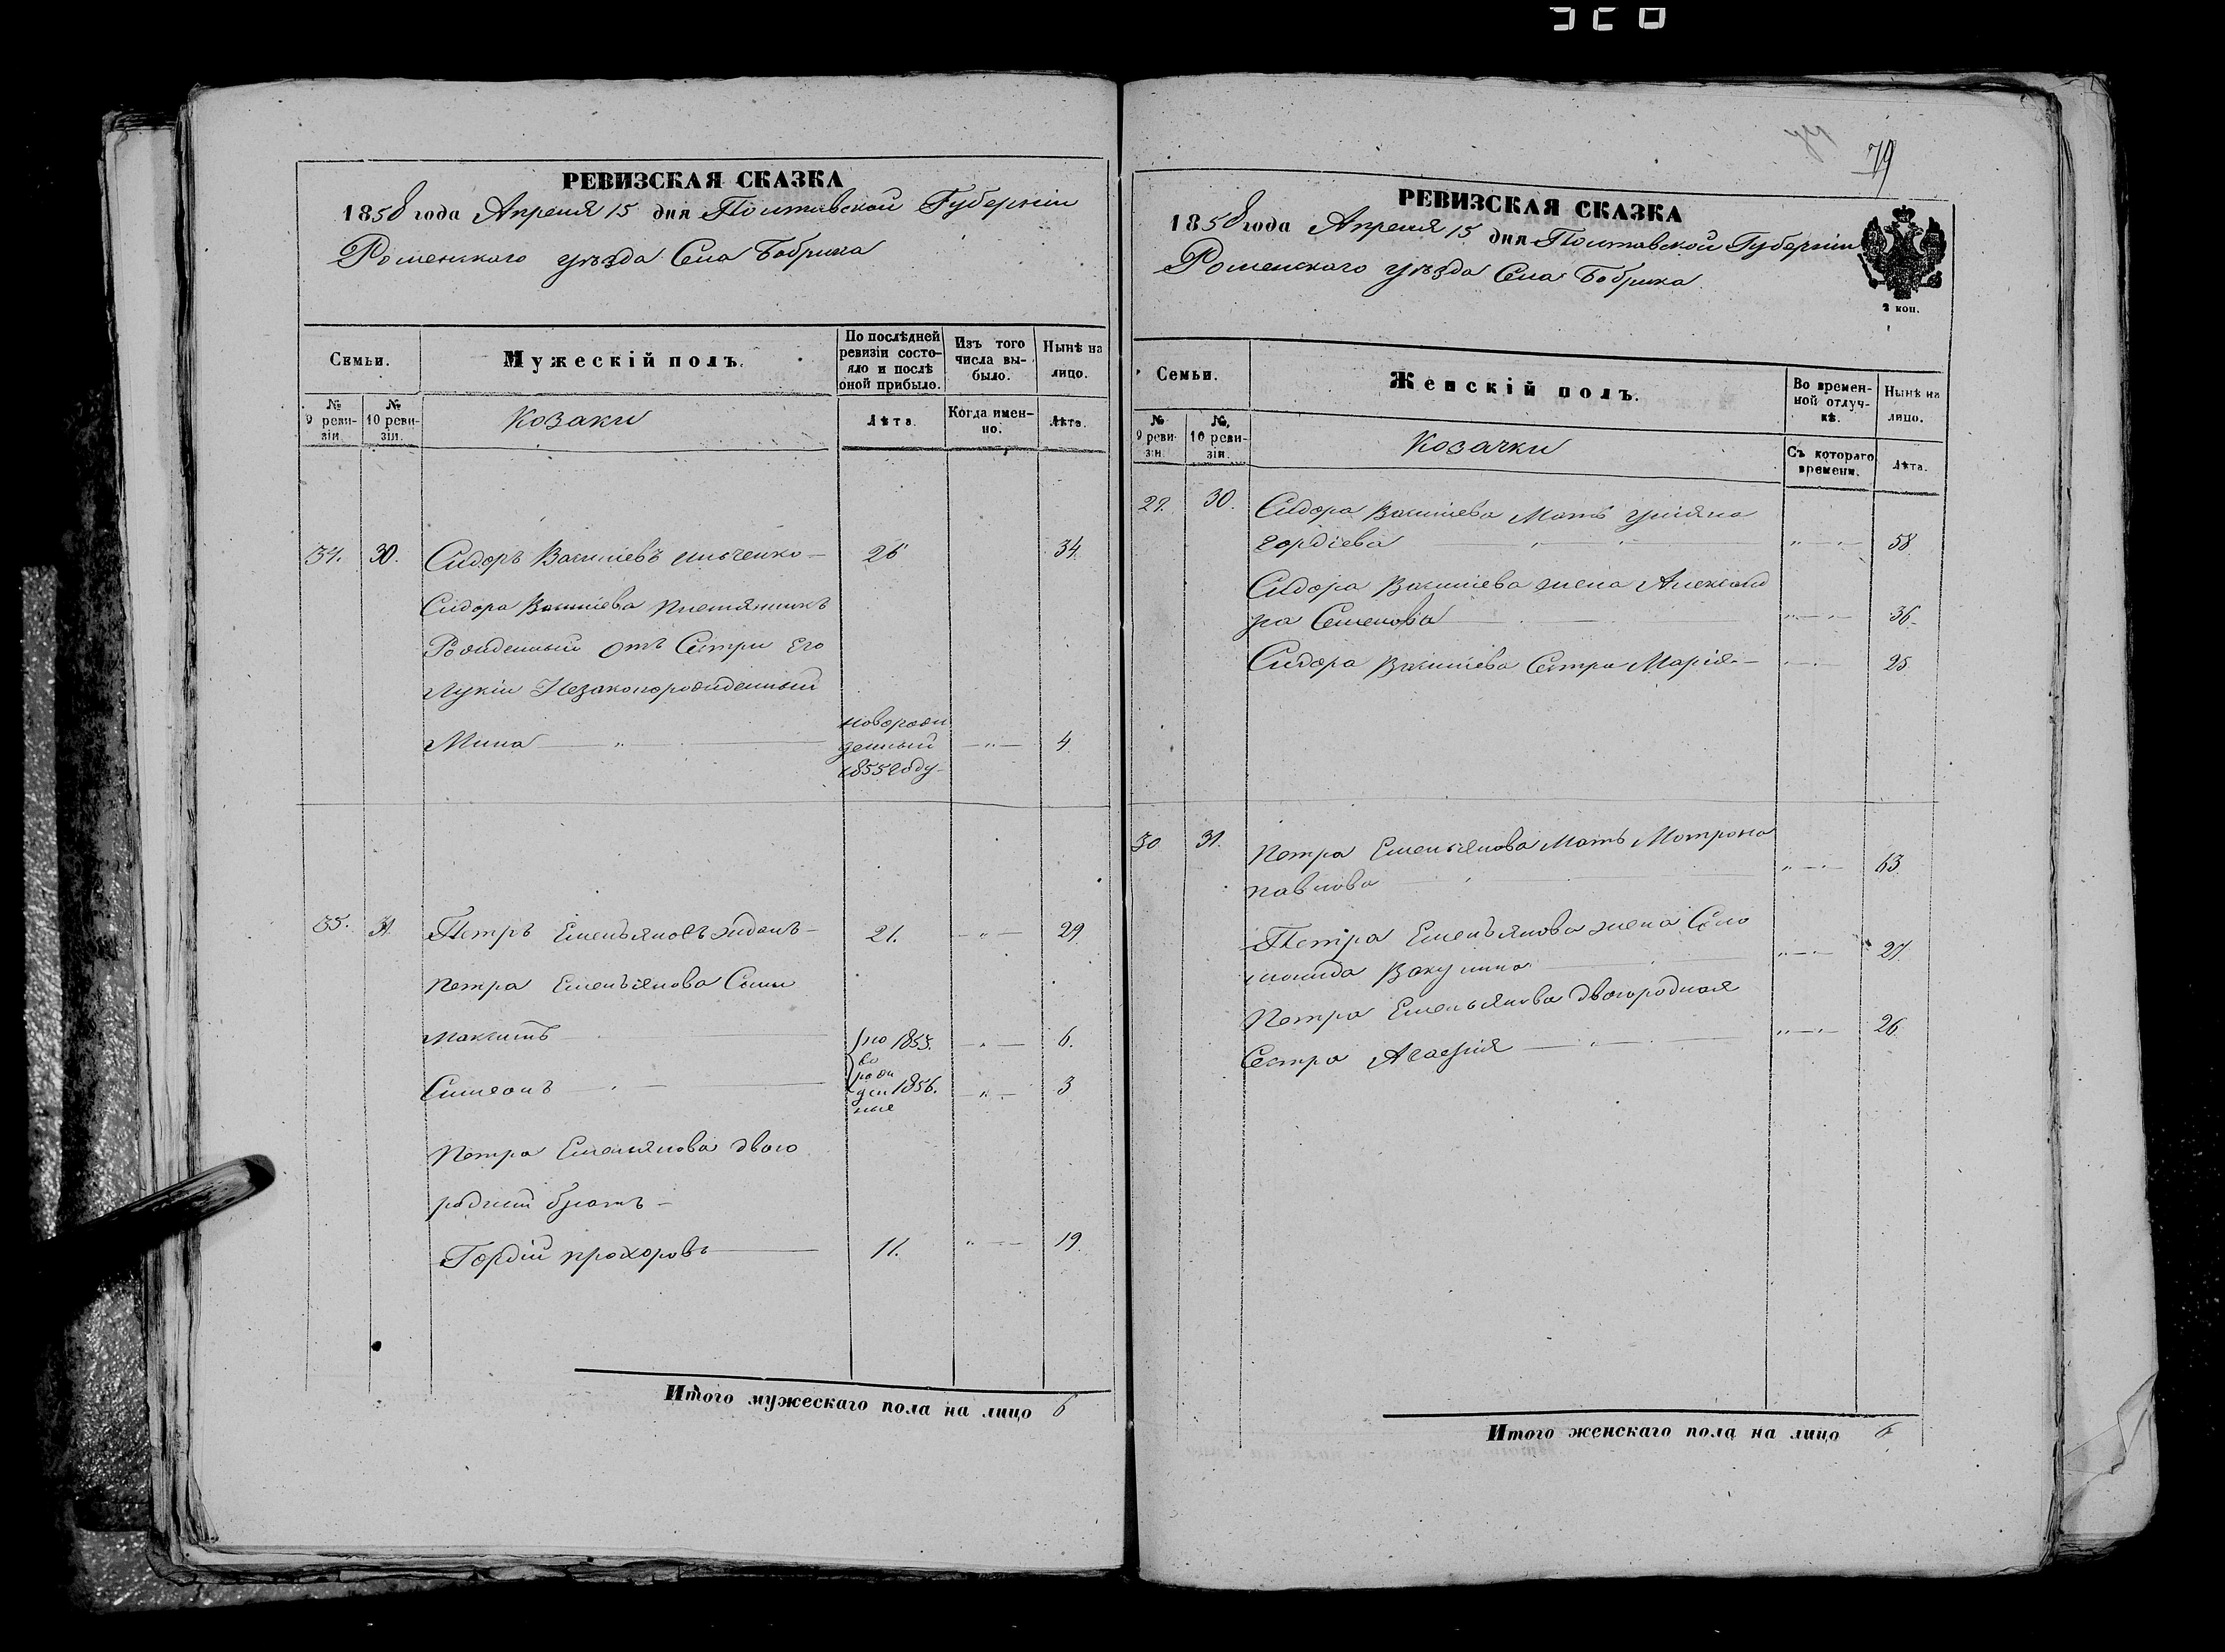 79
РЕВИЗСКАЯ СКАЗКА
1858 года Апреля 15 дня Полтавской Губерніи
Роменского уѣзда Села Бобрика
Семьи.
Мужескій полъ.
По послѣдней ревизіи состояло и послѣ оной прибыло.
Изъ того числа выбыло.
Нынѣ на лицо.
№ 9 ревизіи
№ 10 ревизіи.
Козаки
Лѣта.
Когда именно.
Лѣта.
34. 30. Сидоръ Васильевъ Ильченко — 26 34.
Сидора Васильева Племянникъ
Рожденный отъ Сестри Его
Лукіи Незаконорожденный
Мина — новорожденный 1855 году — 4
35. 31. Петръ Емельяновъ Жданъ — 21. 29
Петра Емельянова Сыны
Макситъ новорожденные 1853. 6.
Симеонъ 1856. 3
Петра Емельянова двою
родный братъ —
Гордій Прохоровъ 11. 19.
Итого мужескаго пола на лицо 6
РЕВИЗСКАЯ СКАЗКА
1858 года Апреля 15 дня Полтавской Губерніи
Роменского уѣзда Села Бобрика
2 коп.
Семьи.
Женскій полъ.
Во временной отлучкѣ.
Нынѣ на лицо.
№ 9 ревизіи.
№ 10 ревизіи.
Козачки
Съ котораго времени.
Лѣта.
29. 30. Сидора Васильева Мать Уліяна
Гордіева 58
Сидора Васильева жена Александ
ра Семенова 36
Сидора Васильева Сестра Марія — 25
30 31. Петра Емельянова Мать Мотрона
Павлова 63
Петра Емельянова жена Соло
Вакулина 27
Петра Емельянова двоюродная
Сестра Агафія 26
Итого женскаго пола на лицо 6